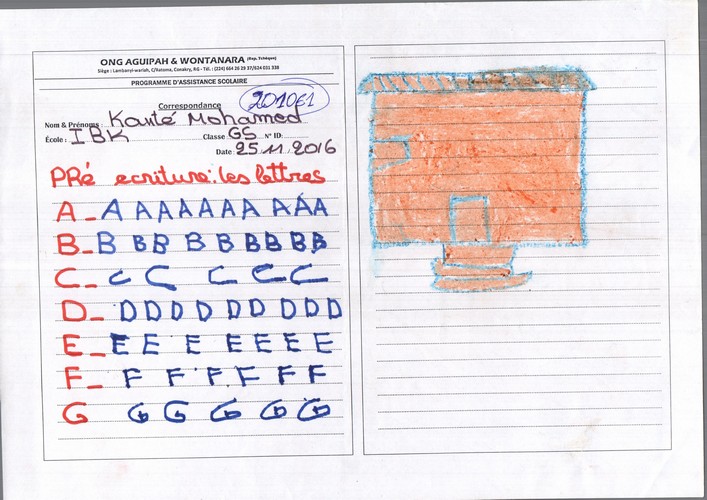 ONG AGUIPAH & WONTANARA (Rep. Tchèque)
Siège : Lambanyi-wariah, C/Ratoma, Conakry, RG - Tél. : (224) 664 26 29 37/624 031 338
PROGRAMME D'ASSISTANCE SCOLAIRE
Correspondance
201061
Nom & Prénoms : Kanté Mohamed
École : IBK Classe GS N° ID:
Date 25.11.2016
PRé ecriture: les lettres
A_ A A A A A A A A A A
B_ B B B B B B B B B
C_ C C C C C
D_ D D D D D D D D D
E_ E E E E E E E
F_ F F F F F F
G G G G G G